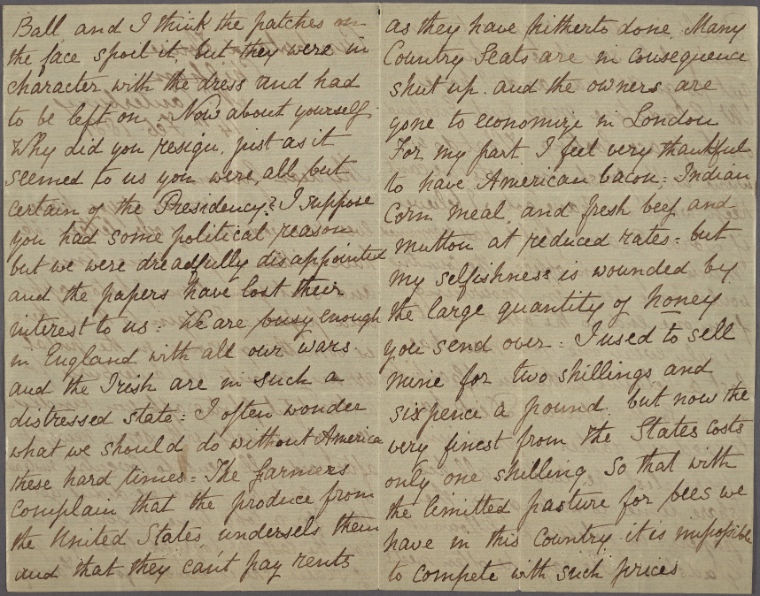 Ball, and I think the patches on
the face spoil it, but they were in
character with the dress and had
to be left on. Now about yourself.
Why did you resign, just as it
seemed to us you were, all but
certain of the Presidency? I suppose
you had some political reason
but we were dreadfully disappointed
and the papers have lost their
interest to us. We are busy enough
in England with all our wars.
and the Irish are in such a
distressed state: I often wonder
what we should do without America
these hard times = The farmers
complain that the produce from
the United States undersels them
and that they can't pay rents
as they have hitherto done. Many
Country Seats are in consequence
shut up. and the owners are
gone to economize in London
For my part I feel very thankful
to have American bacon; Indian
Corn meal, and fresh beef and
mutton at reduced rates = but
my selfishness is wounded by
the large quantity of honey
you send over = I used to sell
mine for two shillings and
sixpence a pound. but now the
very finest from the States costs
only one shilling. So that with
the limitted pasture for bees we
have in this Country it is impossible
to compete with such prices